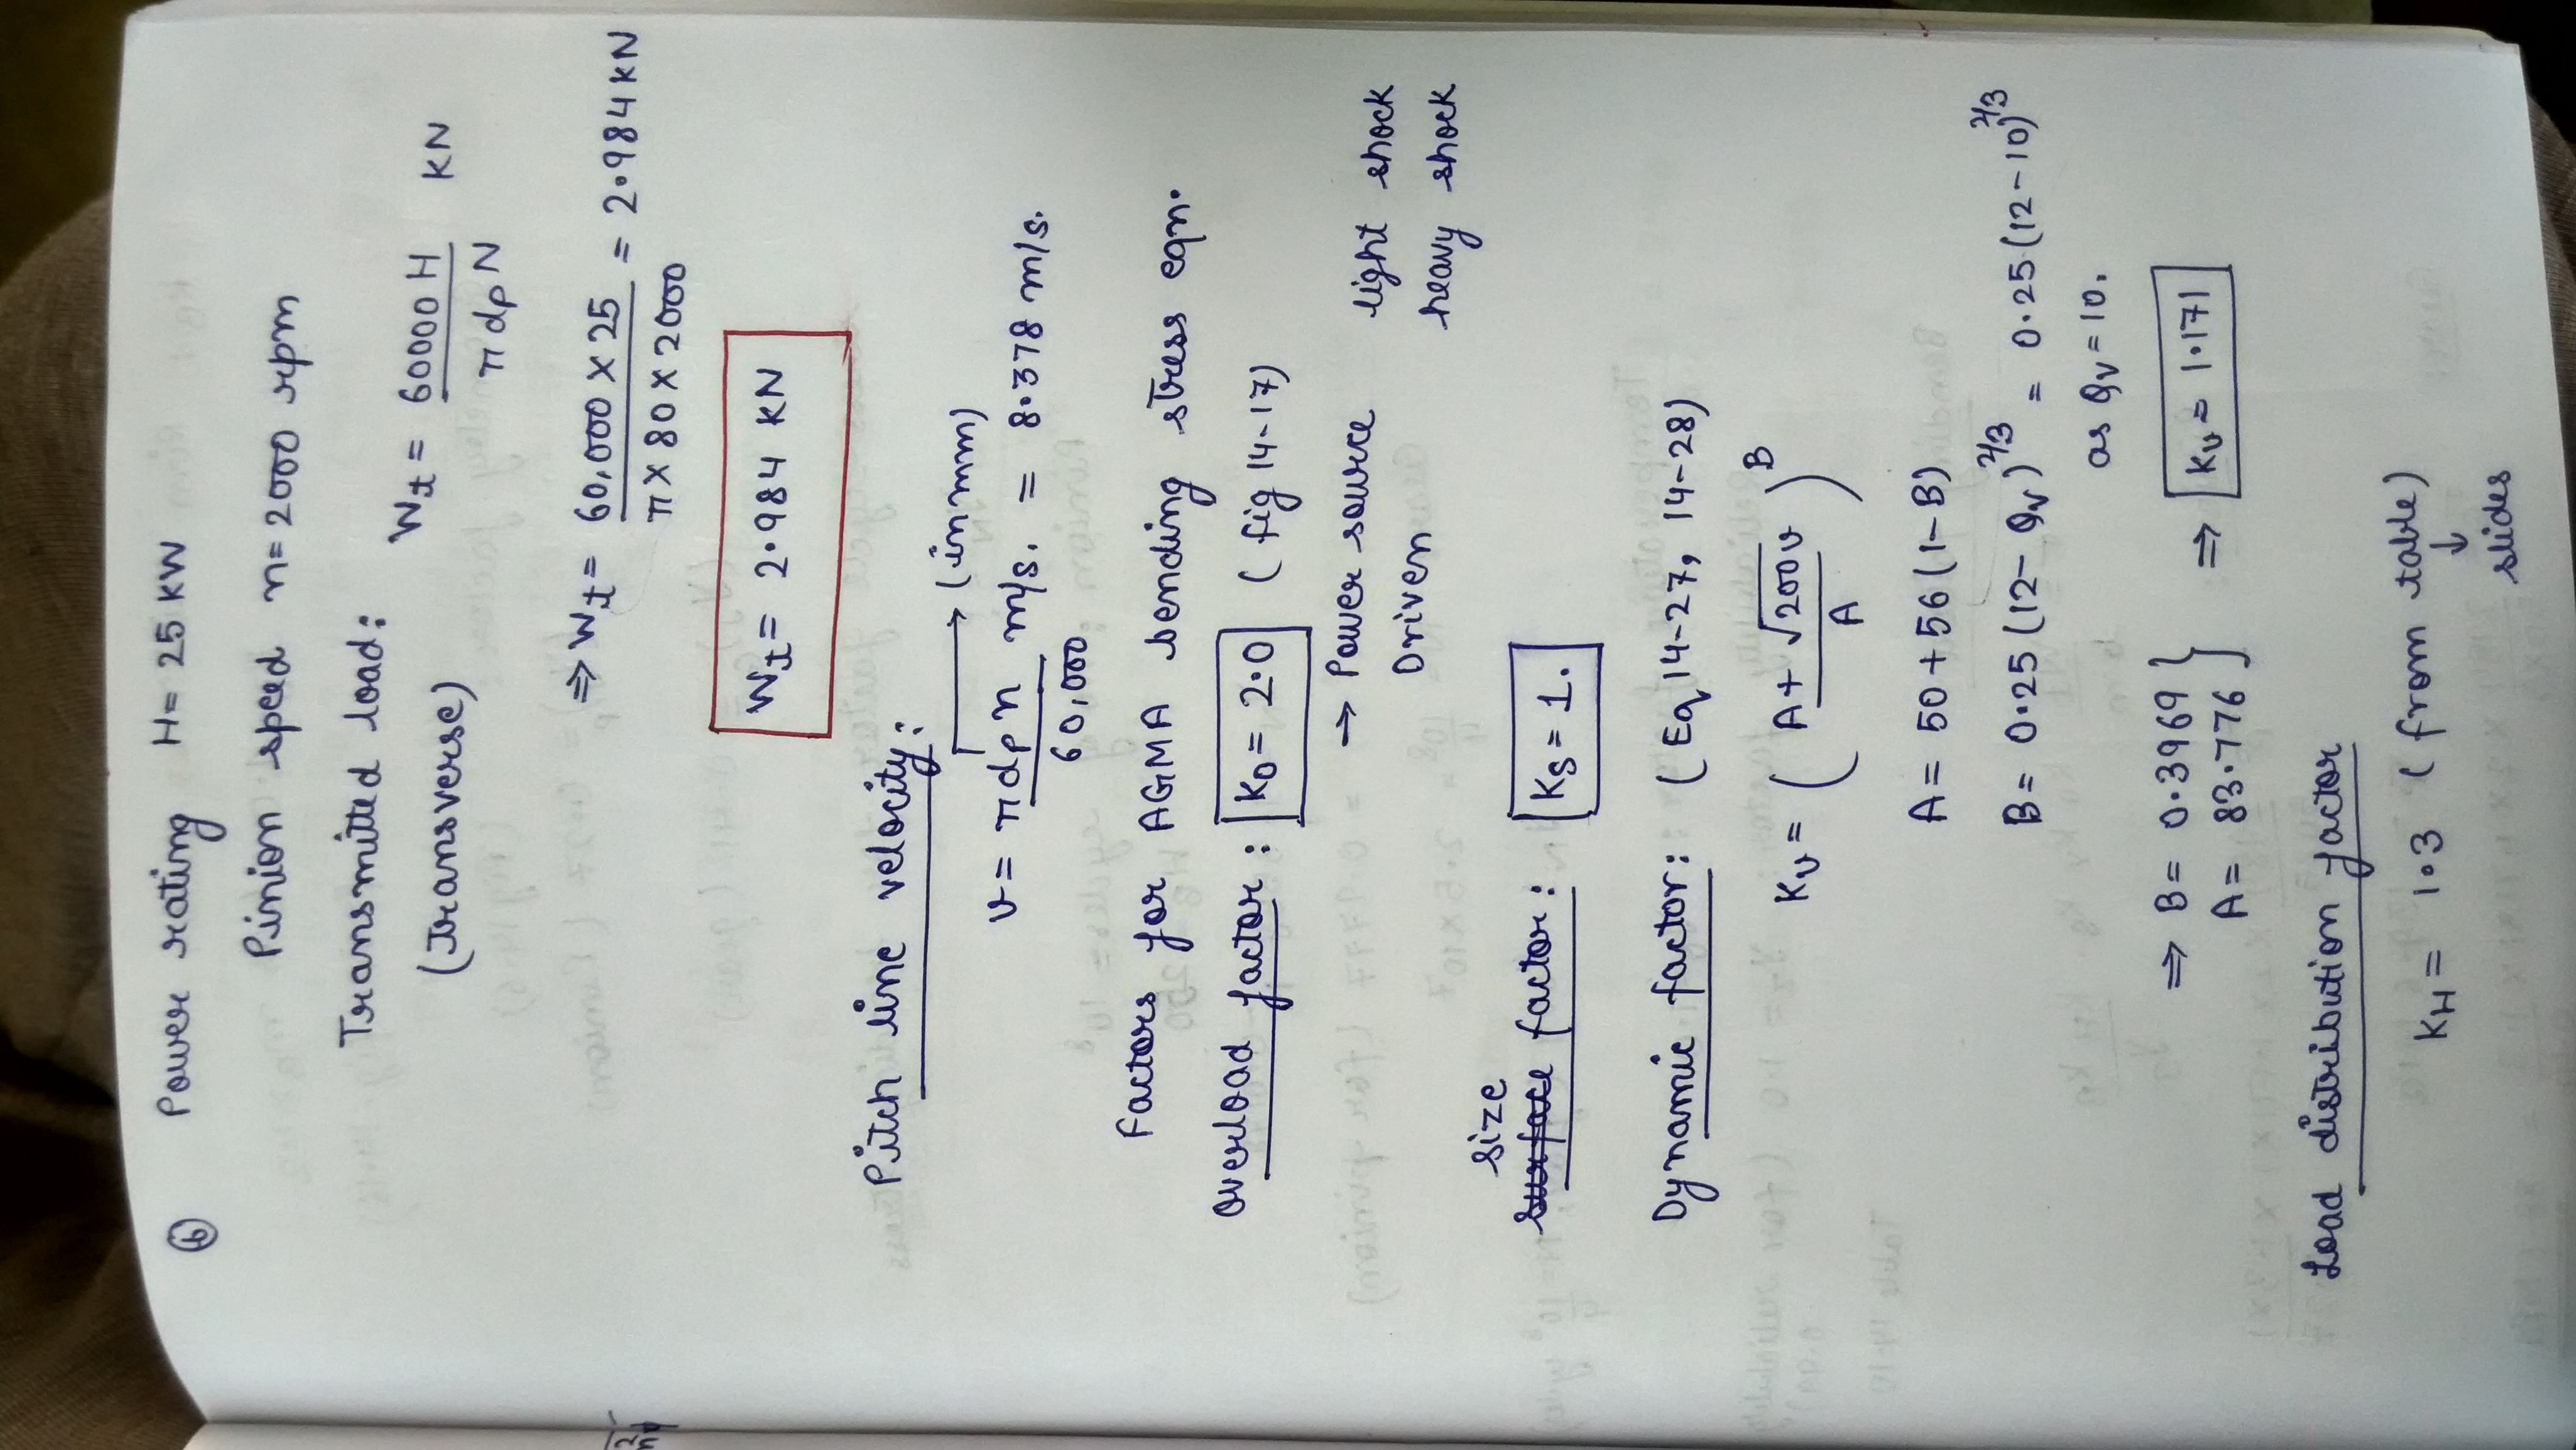 ⑥ Power rating H = 25 KW
Pinion speed n = 2000 rpm
Transmitted load:
(Transverse)
Wt = 60000 H / π dp N KN
⇒ Wt = 60,000 × 25 / π × 80 × 2000 = 2.984 KN
Wt = 2.984 KN
Pitch line velocity:
→ (in mm)
v = π dp n / 60,000 m/s. = 8.378 m/s.
Factors for AGMA bending stress eqn.
Overload factor: Ko = 2.0 (fig 14-17)
→ Power source light shock
Driven heavy shock
size
surface factor: Ks = 1.
Dynamic factor: (Eq 14-27, 14-28)
Kv = ( A + √200v / A )^B
A = 50 + 56 (1 - B)
B = 0.25 (12 - Qv)^2/3 = 0.25 (12 - 10)^2/3
as Qv = 10.
⇒ B = 0.3969
A = 83.776 } ⇒ Kv = 1.171
Load distribution factor
KH = 1.3 (from table)
↓
slides